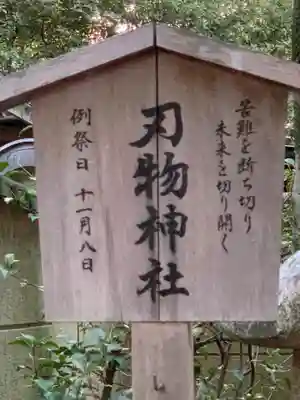 苦難を断ち切り
未来を切り開く
刃物神社
例祭日 十一月八日